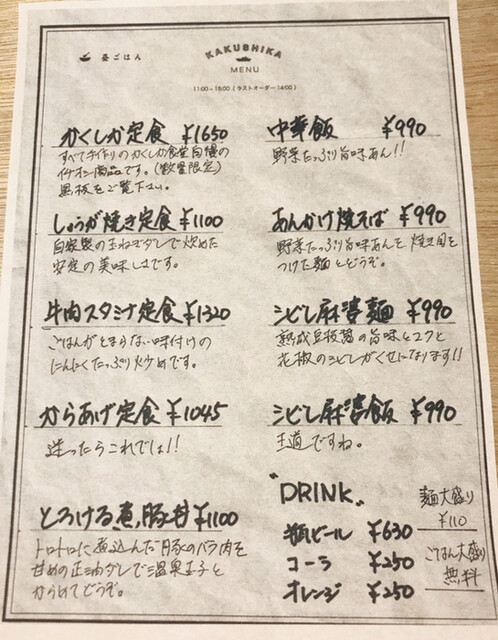 昼ごはん
KAKUSHIKA
MENU
11:00-15:00(ラストオーダー14:00)
かくしか定食 ¥1650
すべて手作りのかくしか食堂自慢の
イチオシ商品です。(数量限定)
黒板をご覧下さい。
しょうが焼き定食 ¥1100
自家製の玉ねぎダレで炒めた
安定の美味しさです。
牛肉スタミナ定食 ¥1320
ごはんがとまらない味付けの
にんにくたっぷり炒めです。
からあげ定食 ¥1045
迷ったらこれでしょ!!
とろける煮豚丼 ¥1100
トロトロに煮込んだ豚のバラ肉を
甘めの正油ダレで温泉玉子と
からめてどうぞ。
中華飯 ¥990
野菜たっぷり旨味あん!!
あんかけ焼そば ¥990
野菜たっぷり旨味あんを焼き目を
つけた麺とどうぞ。
シビレ麻婆麺 ¥990
熟成豆板醤の旨味とコクと
花椒のシビレがくせになります!!
シビレ麻婆飯 ¥990
王道ですね。
"DRINK"
瓶ビール ¥630
コーラ ¥250
オレンジ ¥250
麺大盛り
¥110
ごはん大盛り
無料